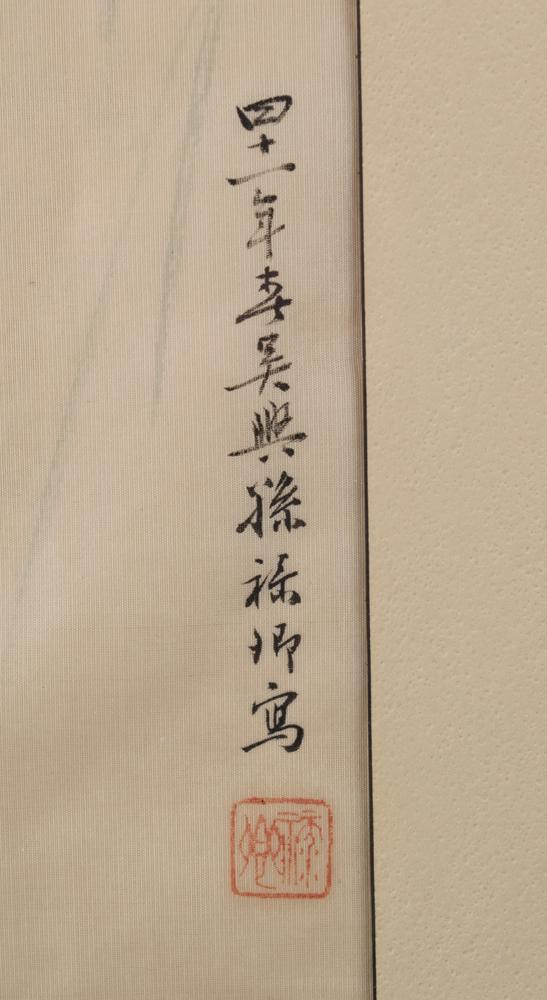 四十一年春吳興孫祿卿寫
祿卿